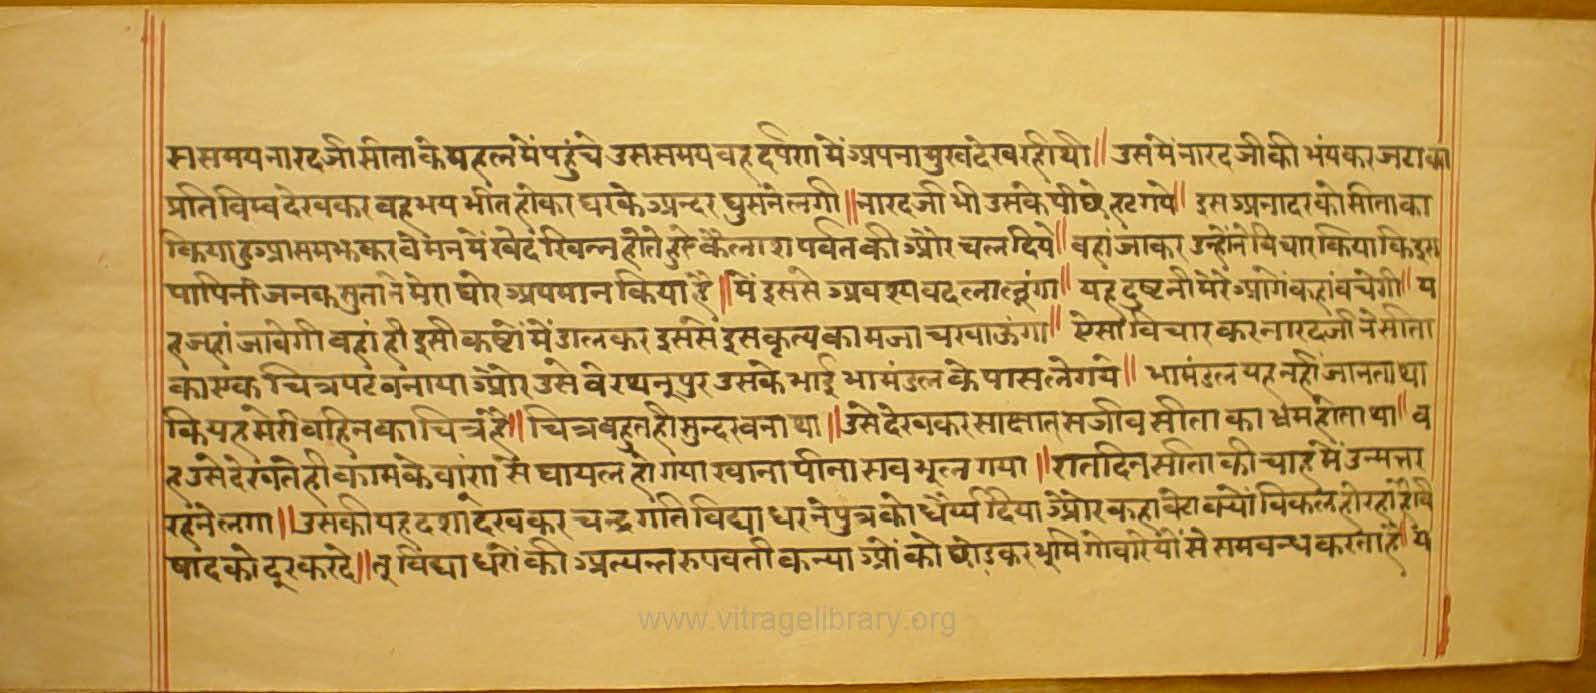 स समय नारद जी सीता के महल में पहुंचे उस समय वह दर्पण में अपना मुख देख रही थी॥ उसमें नारद जी की भंयकर जटा का
प्रतिविम्व देखकर वह भय भीत होकर घर के अन्दर घुसने लगी॥ नारद जी भी उसके पीछे हट गये॥ इस अनादर को सीता का
किया हुआ समझ कर वे मन में खेद खिन्न होते हुऐ कैलाश पर्वत की और चल दिये॥ वहां जाकर उन्होंने विचार किया कि इस
पापिनी जनक सुता ने मेरा घोर अपमान किया है॥ में इससे अवश्य वदला लूंगा॥ यह दुष्टनी मेरे आगें कहां वचेगी॥ य
ह जहां जावेगी वहां ही इसी कष्टों में डालकर इससे इस कृत्य का मजा चखाऊंगा॥ ऐसा विचार कर नारद जी ने सीता
का एक चित्र पट वनाया और उसे वे रथनूपुर उसके भाई भामंडल के पास ले गये॥ भामंडल यह नहीं जानता था
कि यह मेरी वहिन का चित्र है॥ चित्र बहुत ही सुन्दर वना था॥ उसे देखकर साक्षात सजीव सीता का भ्रम होता था॥ व
ह उसे देखते ही काम के वांण से घायल हो गया खाना पीना सव भूल गया॥ रात दिन सीता की चाह में उन्मत्त
रहने लगा॥ उसकी यह दशा देखकर चन्द्र गति विद्याधर ने पुत्र को धैर्य्य दिया और कहा वेटा क्यों विकल हो रहा है वि
षाद को दूर कर दे॥ तू विद्या धरों की अत्यन्त रुपवती कन्या ओं को छोड़कर भूमि गोचरियों से समवन्ध करता है॥ ये
www.vitragelibrary.org